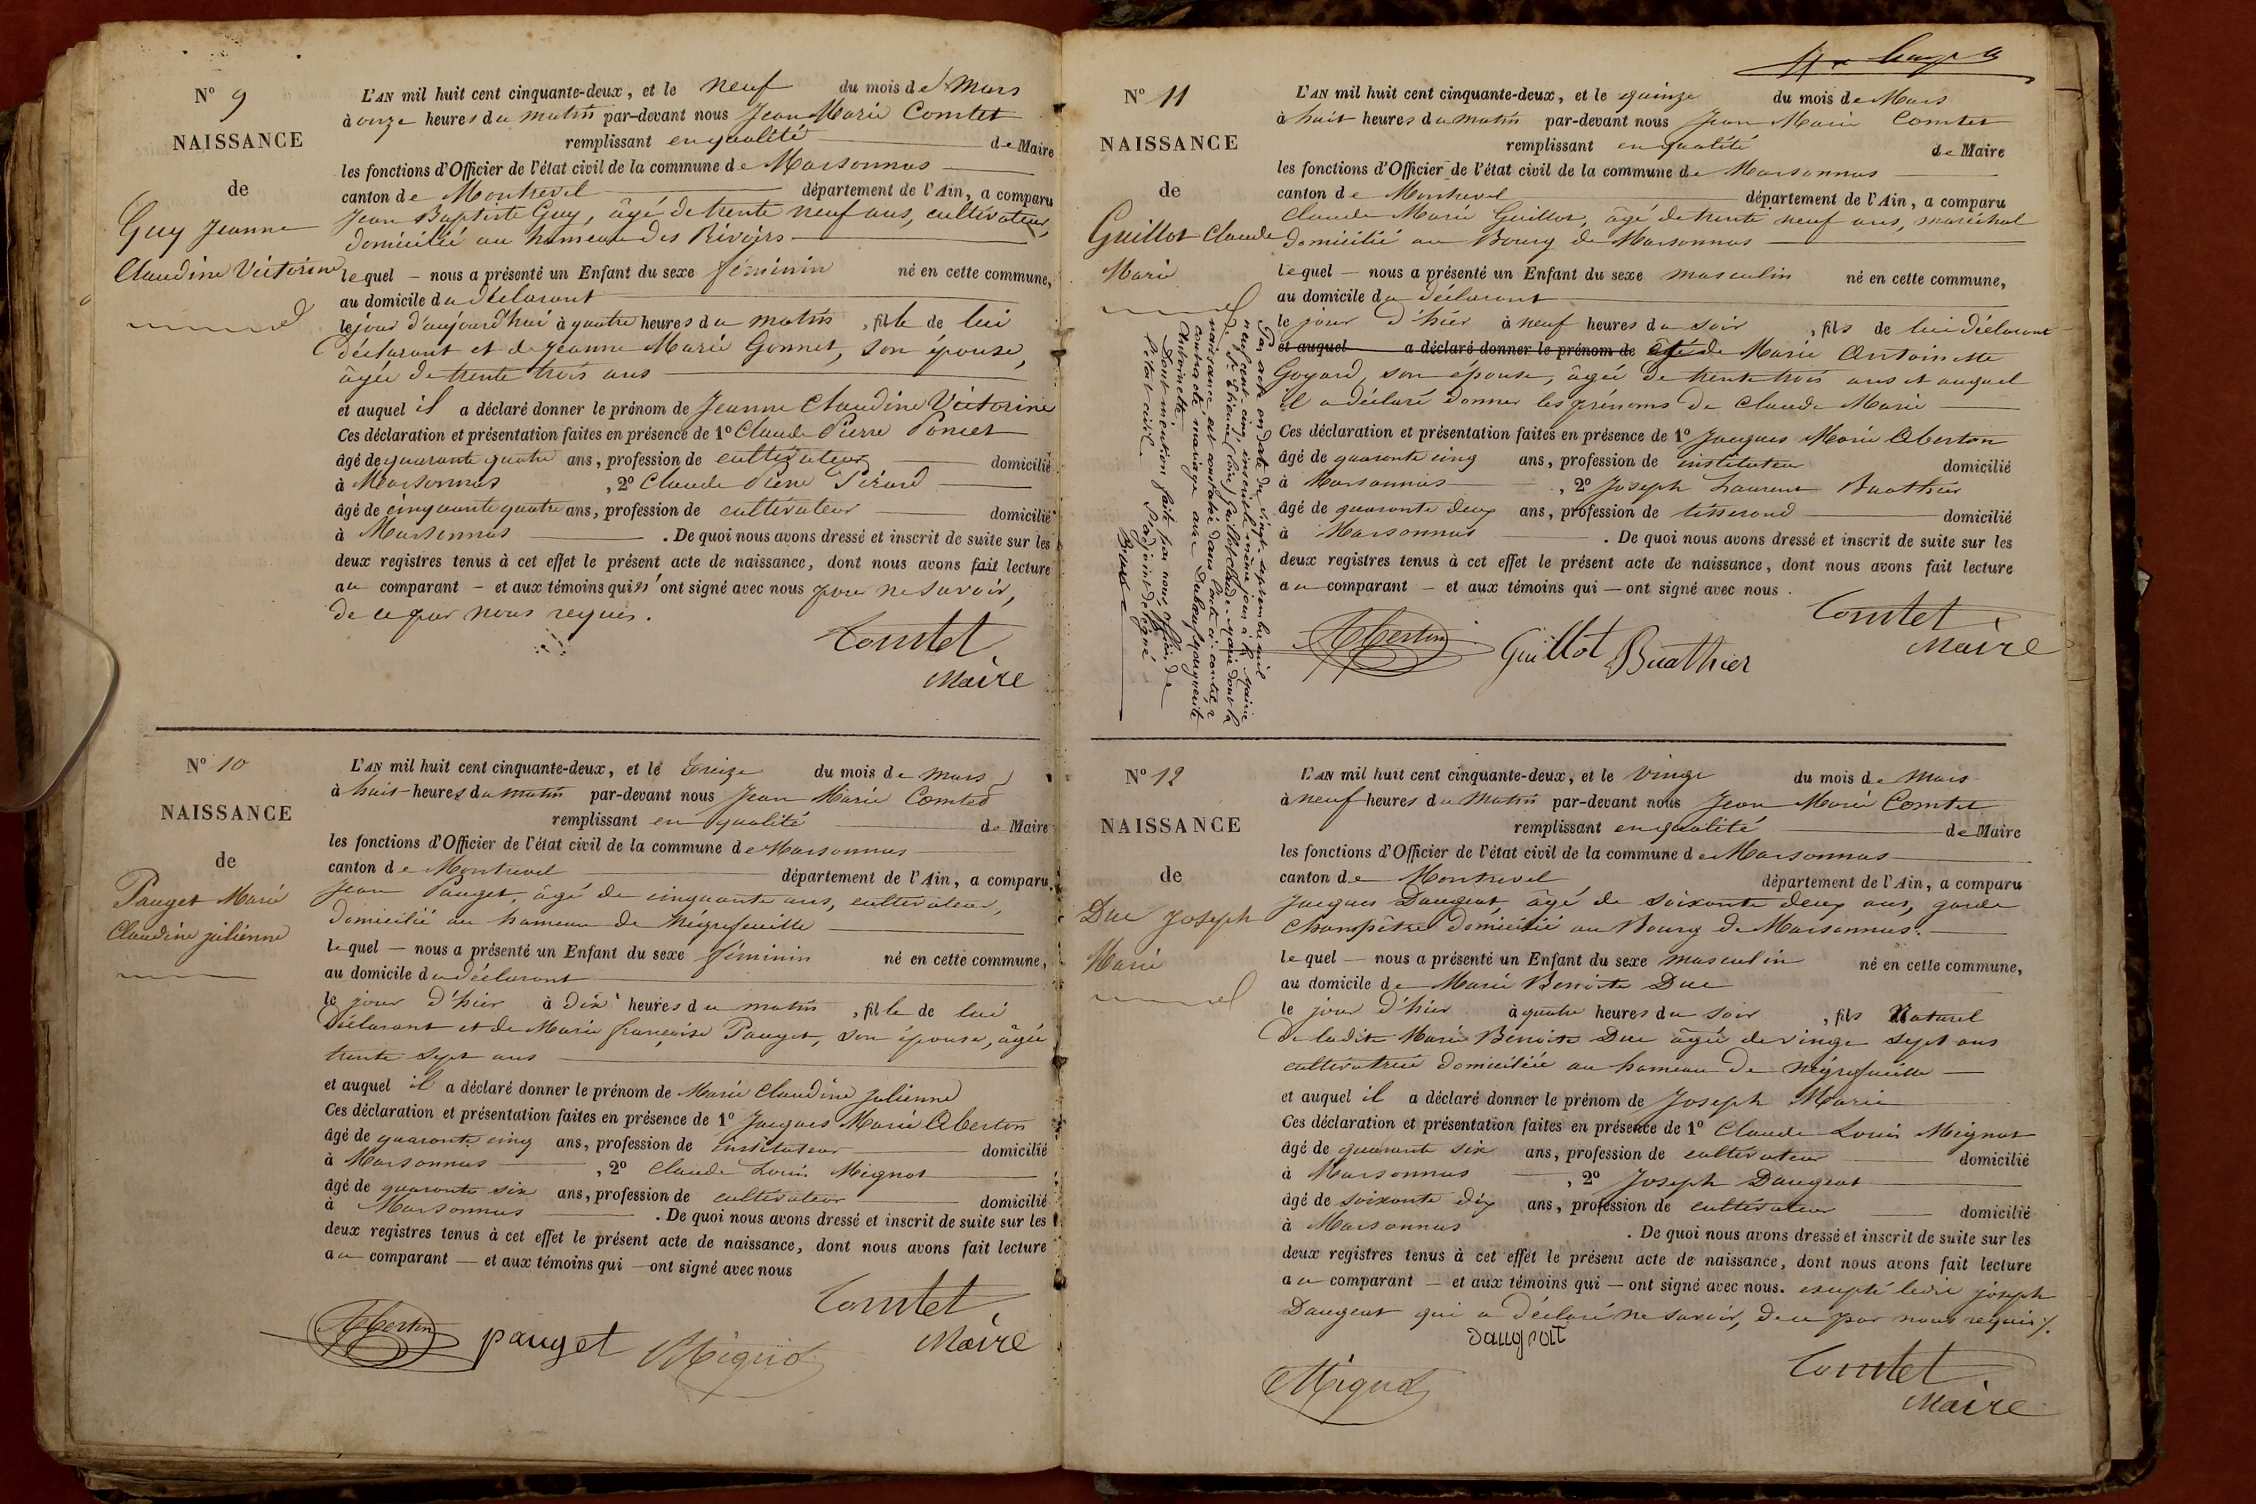 Nº 9
NAISSANCE
de
Guy Jeanne
Claudine Victorine
L'AN mil huit cent cinquante-deux, et le neuf du mois de Mars
à onze heures du matin par-devant nous Jean Marie Comtet
remplissant en qualité de Maire
les fonctions d'Officier de l'état civil de la commune de Marsonnas
canton de Montrevel département de l'Ain, a comparu
Jean Baptiste Guy, âgé de trente neuf ans, cultivateur,
domicilié au hameau des Rivoirs
lequel nous a présenté un Enfant du sexe féminin né en cette commune,
au domicile du déclarant
le jour d'aujourd'hui à quatre heures du matin, fille de lui
déclarant et de Jeanne Marie Gonnet, son épouse,
âgée de trente trois ans
et auquel il a déclaré donner le prénom de Jeanne Claudine Victorine
Ces déclaration et présentation faites en présence de 1º Claude Pierre Poncet
âgé de quarante quatre ans, profession de cultivateur domicilié
à Marsonnas, 2º Claude Pierre Pirard
âgé de cinquante quatre ans, profession de cultivateur domicilié
à Marsonnas. De quoi nous avons dressé et inscrit de suite sur les
deux registres tenus à cet effet le présent acte de naissance, dont nous avons fait lecture
au comparant et aux témoins qui n'ont signé avec nous pour ne savoir,
de ce par nous requis.
Comtet
Maire
Nº 10
NAISSANCE
de
Pauget Marie
Claudine julienne
L'AN mil huit cent cinquante-deux, et le treize du mois de mars
à huit heures du matin par-devant nous Jean Marie Comtet
remplissant en qualité de Maire
les fonctions d'Officier de l'état civil de la commune de Marsonnas
canton de Montrevel département de l'Ain, a comparu
Jean Pauget, âgé de cinquante ans, cultivateur,
domicilié au hameau de Négrefeuille
lequel nous a présenté un Enfant du sexe féminin né en cette commune,
au domicile du déclarant
le jour d'hier à dix heures du matin, fille de lui
Déclarant et de Marie françoise Pauget, son épouse, âgée
trente sept ans
et auquel il a déclaré donner le prénom de Marie Claudine julienne
Ces déclaration et présentation faites en présence de 1º Jacques Marie Oberton
âgé de quarante cinq ans, profession de instituteur domicilié
à Marsonnas, 2º Claude Louis Mignot
âgé de quarante six ans, profession de cultivateur domicilié
à Marsonnas. De quoi nous avons dressé et inscrit de suite sur les
deux registres tenus à cet effet le présent acte de naissance, dont nous avons fait lecture
au comparant et aux témoins qui ont signé avec nous
Comtet
Maire
pauget Mignot
Nº 11
NAISSANCE
de
Guillot Claude
Marie
Par acte en date du vingt-septembre mil
neuf cent cinq, inscrit le même jour à la mairie
de St Etienne (Loire) Guillot Claude-Marie dont la
naissance est constatée dans l'acte ci-contre, a
contracté mariage avec Marguerite
Antoinette.
Dont mention faite par nous, officier de
l'état civil. L'adjoint délégué
L'AN mil huit cent cinquante-deux, et le quinze du mois de Mars
à huit heures du matin par-devant nous Jean Marie Comtet
remplissant en qualité de Maire
les fonctions d'Officier de l'état civil de la commune de Marsonnas
canton de Montrevel département de l'Ain, a comparu
Claude Marie Guillot, âgé de trente neuf ans, maréchal
domicilié au Bourg de Marsonnas
lequel nous a présenté un Enfant du sexe masculin né en cette commune,
au domicile du déclarant
le jour d'hier à neuf heures du soir, fils de lui déclarant
et auquel a déclaré donner le prénom de et de Marie Antoinette
Goyard, son épouse, âgée de trente trois ans et auquel
il a déclaré donner les prénoms de Claude Marie
Ces déclaration et présentation faites en présence de 1º Jacques Marie Oberton
âgé de quarante cinq ans, profession de instituteur domicilié
à Marsonnas, 2º Joseph Laurent Buathier
âgé de quarante deux ans, profession de tisserand domicilié
à Marsonnas. De quoi nous avons dressé et inscrit de suite sur les
deux registres tenus à cet effet le présent acte de naissance, dont nous avons fait lecture
au comparant et aux témoins qui ont signé avec nous.
Comtet
Maire
Guillot Buathier
Nº 12
NAISSANCE
de
Duc Joseph
Marie
L'AN mil huit cent cinquante-deux, et le vingt du mois de Mars
à neuf heures du matin par-devant nous Jean Marie Comtet
remplissant en qualité de Maire
les fonctions d'Officier de l'état civil de la commune de Marsonnas
canton de Montrevel département de l'Ain, a comparu
Jacques Daugeat, âgé de soixante deux ans, garde
Champêtre domicilié au Bourg de Marsonnas.
lequel nous a présenté un Enfant du sexe masculin né en cette commune,
au domicile de Marie Benoite Duc
le jour d'hier à quatre heures du soir, fils Naturel
de ladite Marie Benoite Duc âgée de vingt sept ans
cultivatrice domiciliée au hameau de négrefeuille
et auquel il a déclaré donner le prénom de Joseph Marie
Ces déclaration et présentation faites en présence de 1º Claude Louis Mignot
âgé de quarante six ans, profession de cultivateur domicilié
à Marsonnas, 2º Joseph Daugeat
âgé de soixante dix ans, profession de cultivateur domicilié
à Marsonnas. De quoi nous avons dressé et inscrit de suite sur les
deux registres tenus à cet effet le présent acte de naissance, dont nous avons fait lecture
au comparant et aux témoins qui ont signé avec nous. excepté ledit joseph
Daugeat qui a déclaré ne savoir, de ce par nous requis /.
Comtet
Maire
Mignot